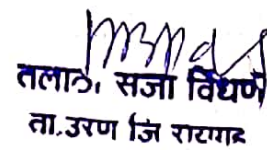 तलाठी, सजा विंधणे
ता.उरण जि रायगड